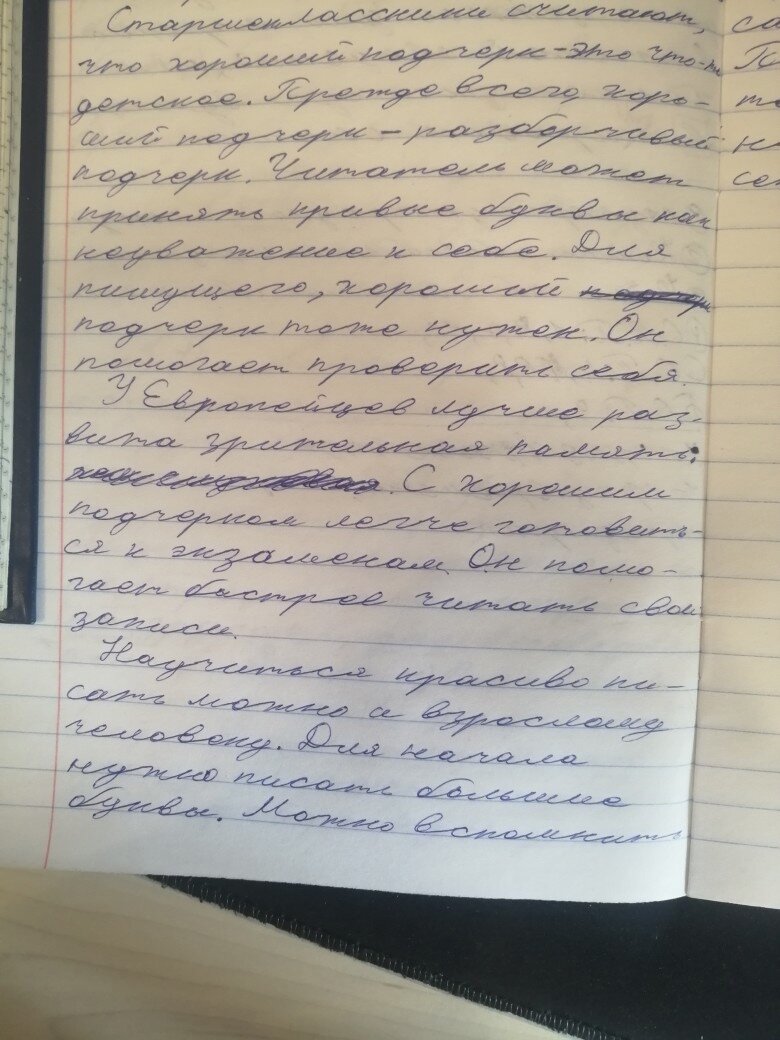 Старшеклассники считают,
что хороший подчерк - это что-то
детское. Прежде всего, хоро-
ший подчерк - разборчивый
подчерк. Читатель может
принять кривые буквы как
неуважение к себе. Для
пишущего, хороший
подчерк тоже нужен. Он
помогает проверить себя.
У Европейцев лучше раз-
вита зрительная память.
С хорошим
подчерком легче готовить-
ся к экзаменам. Он помо-
гает быстрее читать свои
записи.
Научиться красиво пи-
сать можно и взрослому
человеку. Для начала
нужно писать большие
буквы. Можно вспомнить